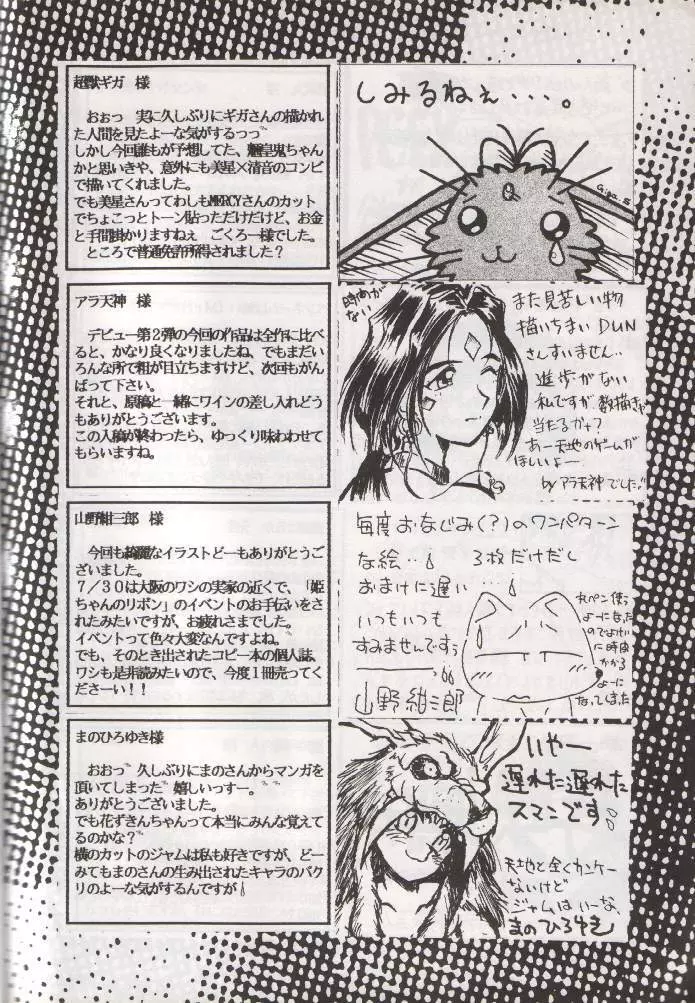 超獣ギガ 様
おぉっ 実に久しぶりにギガさんの描かれ
た人間を見たよーな気がするっっ゛
しかし今回誰もが予想してた、魎皇鬼ちゃん
かと思いきや、意外にも美星×清音のコンビ
で描いてくれました。
でも美星さんってわしもMERCYさんのカット
でちょこっとトーン貼っただけだけど、お金
と手間掛かりますねぇ ごくろー様でした。
ところで普通免許所得されました？
しみるねぇ・・・・。
Giga.S
アラ天神 様
デビュー第２弾の今回の作品は全作に比べ
ると、かなり良くなりましたね、でもまだい
ろんな所で粗が目立ちますけど、次回もがん
ばって下さい。
それと、原稿と一緒にワインの差し入れどう
もありがとうございます。
この入稿が終わったら、ゆっくり味わわせて
もらいますね。
時間が
ない
また見苦しい物
描いちまい DUN
さんすいません‥
進歩がない
私ですが数描きゃ
当たるかナ？
あー天地のゲームが
ほしいよー
by アラ天神でした。
山野紺三郎 様
今回も綺麗なイラストどーもありがとうご
ざいました。
７／３０は大阪のワシの実家の近くで、「姫
ちゃんのリボン」のイベントのお手伝いをさ
れたみたいですが、お疲れさまでした。
イベントって色々大変なんですよね。
でも、そのとき出されたコピー本の個人誌、
ワシも是非読みたいので、今度１冊売ってく
ださーい！！
毎度おなじみ(？)のワンパターン
な絵‥ ３枚だけだし
おまけに遅い‥
いつもいつも
すみませんですぅ
山野紺三郎
丸ペン使う
よーになった
のでよけい
に時間
かかる
よーに
なってしまった
まのひろゆき様
おおっ゛久しぶりにまのさんからマンガを
頂いてしまった゛嬉しいっすー。
ありがとうございました。
でも花ずきんちゃんって本当にみんな覚えて
るのかな？
横のカットのジャムは私も好きですが、どー
みてもまのさんの生み出されたキャラのバク
リのよーな気がするんですが
いやー
遅れた遅れた
スマンです
天地と全くカンケー
ないけど
ジャムはいーな
まのひろゆき